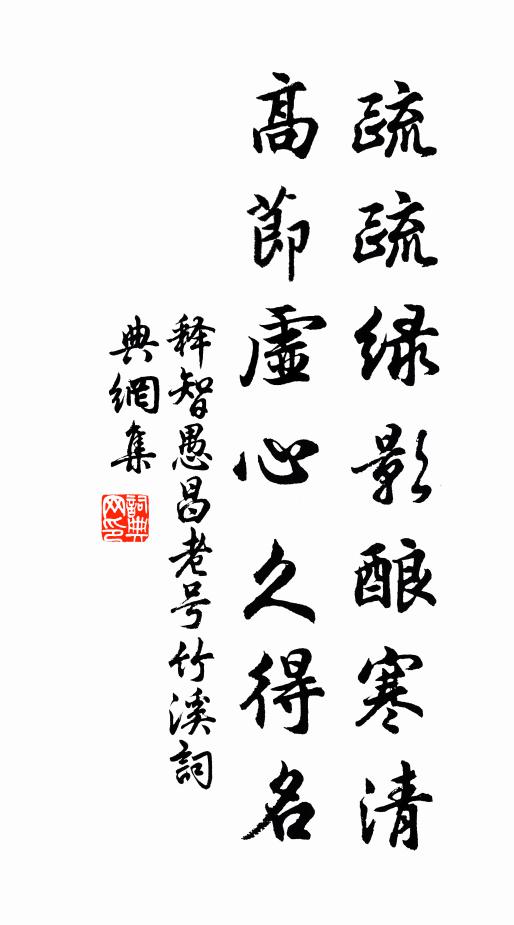 疏疏緑影酿寒清
高節虛心久得名
释智愚昌老号竹溪詞
典網集
詞典网印